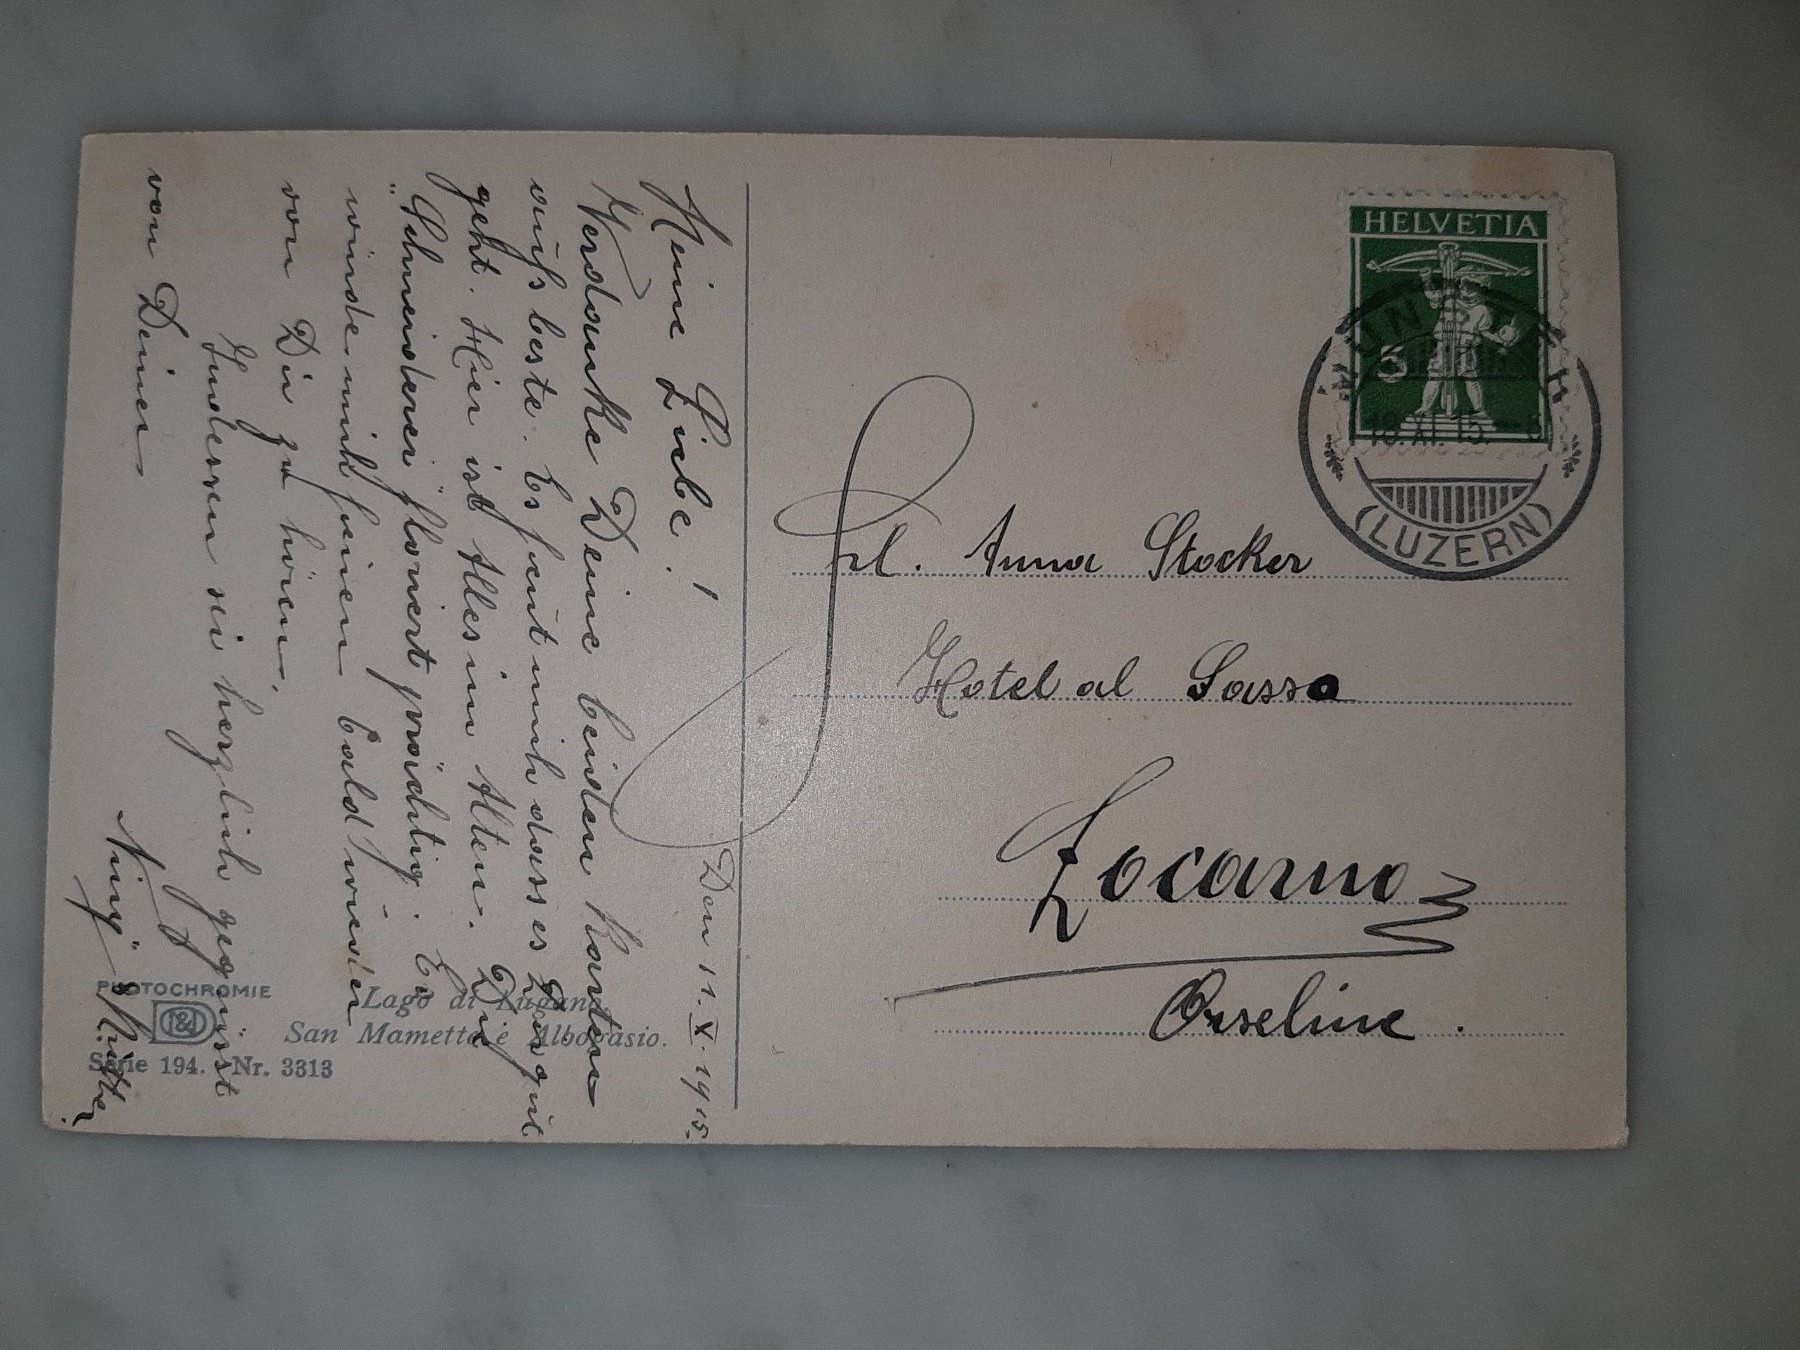 Den 11. X. 1915.
Meine Liebe!
Verdanke Deine beiden Karten
aufs beste. Es freut mich dass es Dir gut
geht. Hier ist Alles im Alten. Die
"Schneiderei" floriert prächtig. Es
würde mich freuen bald wieder
von Dir zu hören.
Indessen sei herzlich gegrüsst
von Deiner
HELVETIA
5
18.XI.15.
(LUZERN)
Frl. Anna Stocker
Hotel al Sasso
Locarno
Orseline.
PHOTOCHROMIE
Lago di Lugano.
San Mamette e Albogasio.
Serie 194. Nr. 3313